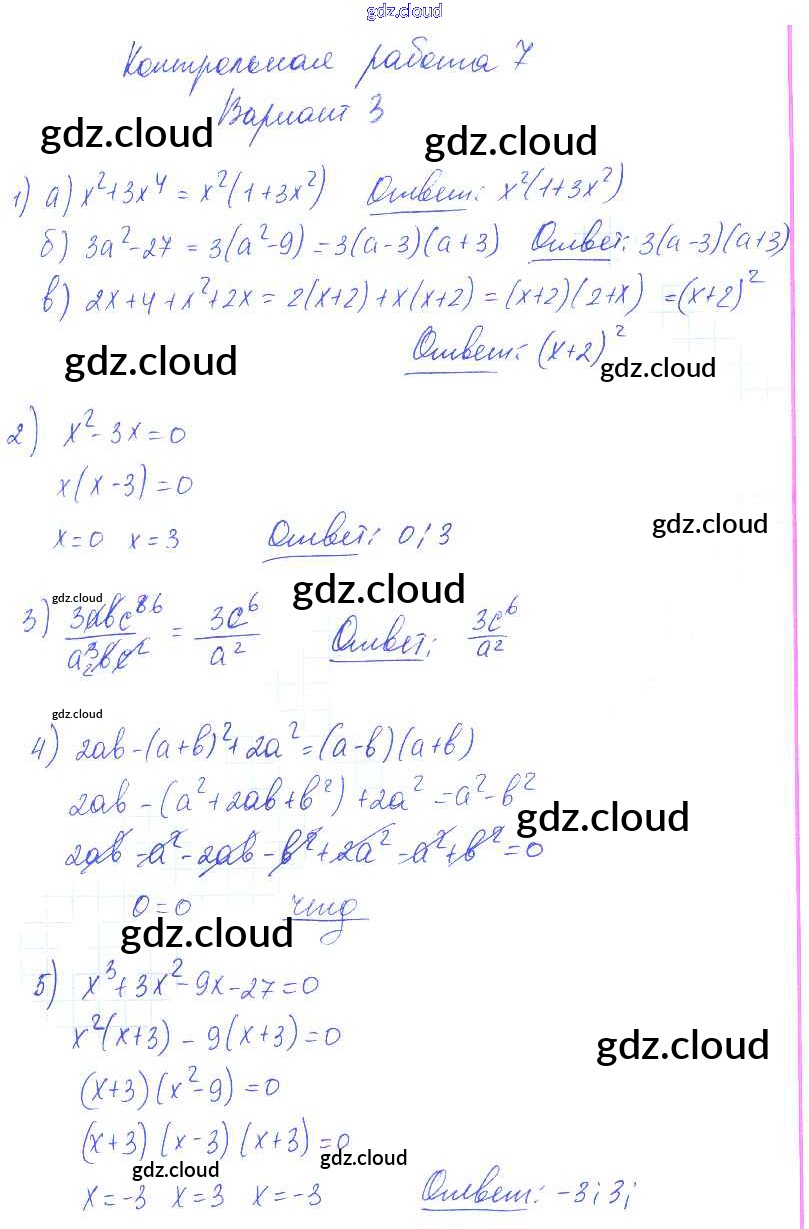 gdz.cloud
Контрольная работа 7
Вариант 3
gdz.cloud gdz.cloud
1) а) x²+3x⁴ = x²(1+3x²) Ответ: x²(1+3x²)
б) 3a²-27 = 3(a²-9) = 3(a-3)(a+3) Ответ: 3(a-3)(a+3)
в) 2x+4+x²+2x = 2(x+2)+x(x+2) = (x+2)(2+x) = (x+2)²
Ответ: (x+2)²
gdz.cloud gdz.cloud
2) x²-3x=0
x(x-3)=0
gdz.cloud
x=0 x=3 Ответ: 0; 3
gdz.cloud gdz.cloud
3) 3abc⁸ ⁶ / a³ ₂ bc² = 3c⁶/a² Ответ: 3c⁶/a²
gdz.cloud
4) 2ab-(a+b)²+2a²=(a-b)(a+b)
2ab-(a²+2ab+b²)+2a²=a²-b²
gdz.cloud
2ab-a²-2ab-b²+2a²-a²+b²=0
0=0 чтд
gdz.cloud
5) x³+3x²-9x-27=0
x²(x+3)-9(x+3)=0
gdz.cloud
(x+3)(x²-9)=0
(x+3)(x-3)(x+3)=0
gdz.cloud gdz.cloud
x=-3 x=3 x=-3 Ответ: -3; 3;